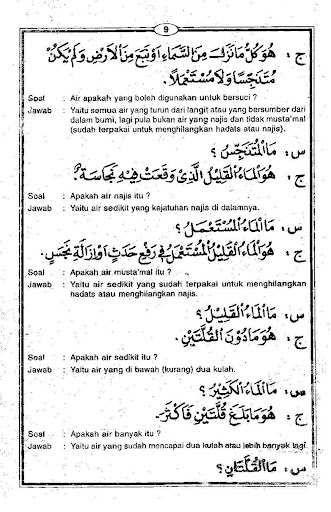 9
ج : هُوَ كُلُّ مَا نَزَلَ مِنَ السَّمَاءِ اَوْ نَبَعَ مِنَ الْاَرْضِ وَلَمْ يَكُنْ
مُتَنَجِّسًا وَلَا مُسْتَعْمَلًا.
Soal : Air apakah yang boleh digunakan untuk bersuci ?
Jawab : Yaitu semua air yang turun dari langit atau yang bersumber dari
dalam bumi, lagi pula bukan air yang najis dan tidak musta'mal
(sudah terpakai untuk menghilangkan hadats atau najis).
س : مَا الْمُتَنَجِّسُ ؟
ج : هُوَ الْمَاءُ الْقَلِيْلُ الَّذِيْ وَقَعَتْ فِيْهِ نَجَاسَةٌ.
Soal : Apakah air najis itu ?
Jawab : Yaitu air sedikit yang kejatuhan najis di dalamnya.
س : مَا الْمَاءُ الْمُسْتَعْمَلُ ؟
ج : هُوَ الْمَاءُ الْقَلِيْلُ الْمُسْتَعْمَلُ فِيْ رَفْعِ حَدَثٍ اَوْ اِزَالَةِ نَجَسٍ.
Soal : Apakah air musta'mal itu ?
Jawab : Yaitu air sedikit yang sudah terpakai untuk menghilangkan
hadats atau menghilangkan najis.
س : مَا الْمَاءُ الْقَلِيْلُ ؟
ج : هُوَ مَا دُوْنَ الْقُلَّتَيْنِ.
Soal : Apakah air sedikit itu ?
Jawab : Yaitu air yang di bawah (kurang) dua kulah.
س : مَا الْمَاءُ الْكَثِيْرُ ؟
ج : هُوَ مَا بَلَغَ قُلَّتَيْنِ فَاَكْثَرَ.
Soal : Apakah air banyak itu ?
Jawab : Yaitu air yang sudah mencapai dua kulah atau lebih banyak lagi.
س : مَا الْقُلَّتَانِ ؟